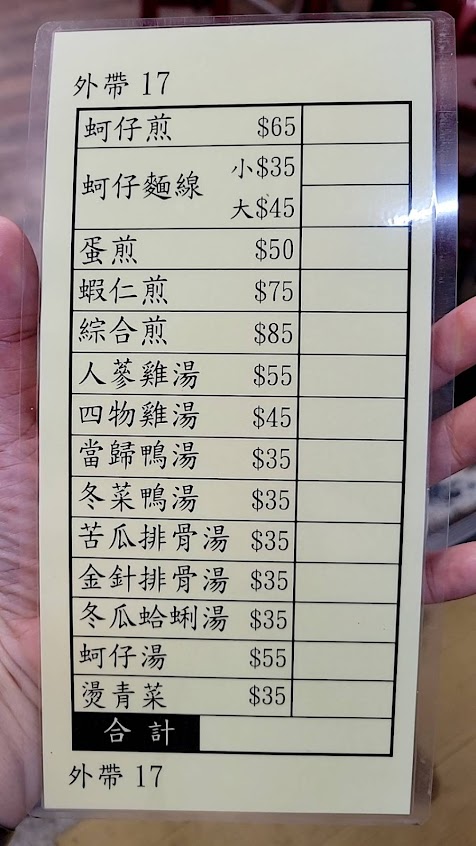 外帶 17
蚵仔煎 $65
蚵仔麵線 小$35
大$45
蛋煎 $50
蝦仁煎 $75
綜合煎 $85
人蔘雞湯 $55
四物雞湯 $45
當歸鴨湯 $35
冬菜鴨湯 $35
苦瓜排骨湯 $35
金針排骨湯 $35
冬瓜蛤蜊湯 $35
蚵仔湯 $55
燙青菜 $35
合計
外帶 17